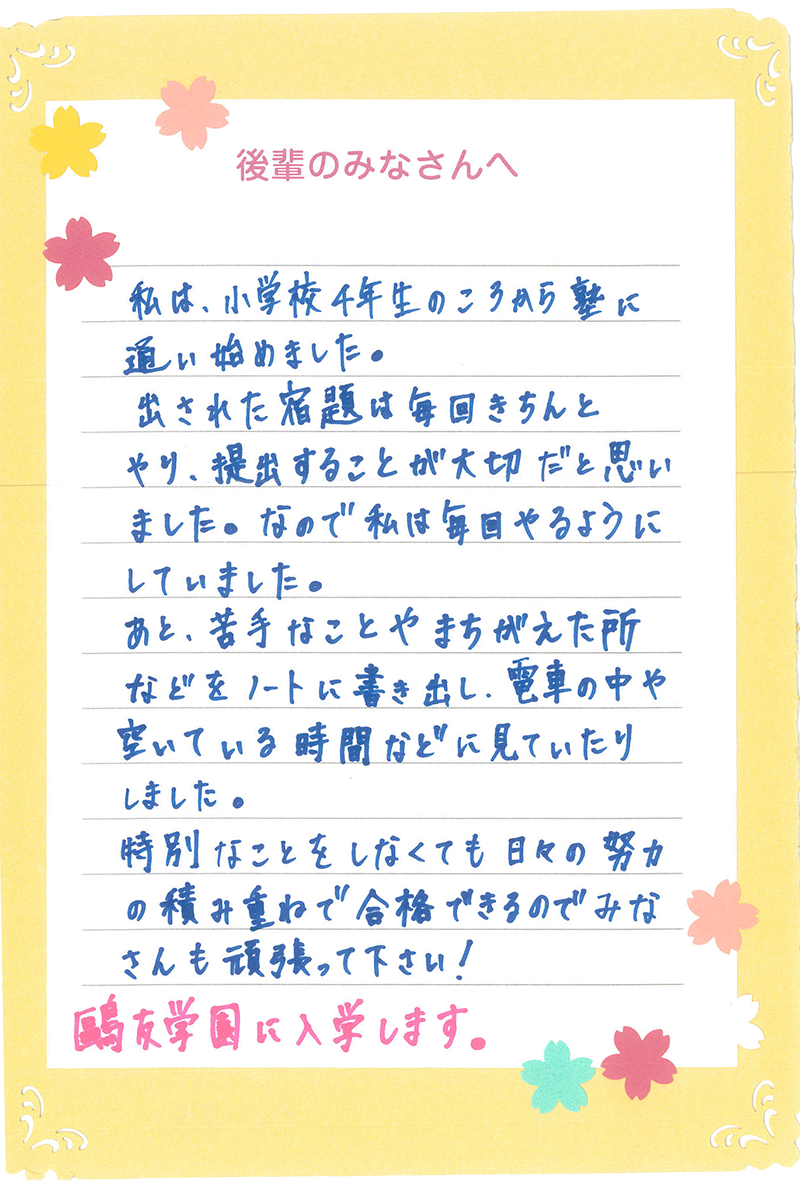 後輩のみなさんへ
私は、小学校4年生のころから塾に
通い始めました。
出された宿題は毎回きちんと
やり、提出することが大切だと思い
ました。なので私は毎回やるように
していました。
あと、苦手なことやまちがえた所
などをノートに書き出し、電車の中や
空いている時間などに見ていたり
しました。
特別なことをしなくても日々の努力
の積み重ねで合格できるのでみな
さんも頑張って下さい!
鷗友学園に入学します。